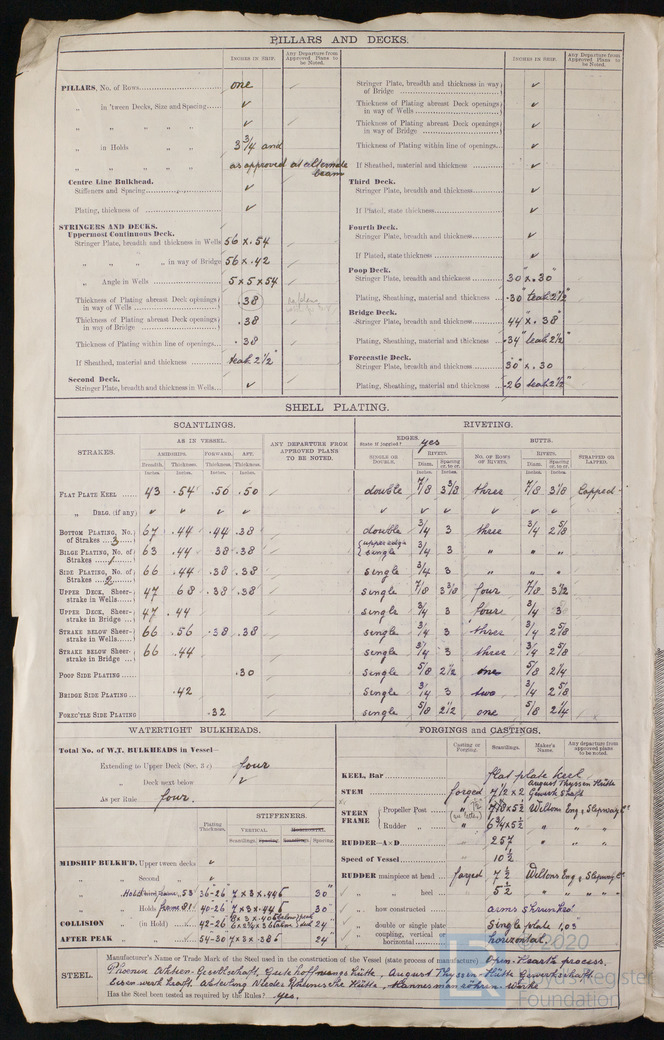 PILLARS AND DECKS.
INCHES IN SHIP. Any Departure from Approved Plans to be Noted.
PILLARS, No. of Rows one
„ in 'tween Decks, Size and Spacing ✓
„ „ „ „ „ ✓
„ in Holds „ „ 3 3/4 and
„ „ „ „ as approved at alternate beam
Centre Line Bulkhead.
Stiffeners and Spacing ✓
Plating, thickness of ✓
STRINGERS AND DECKS.
Uppermost Continuous Deck.
Stringer Plate, breadth and thickness in Wells 56 x .54
„ „ „ in way of Bridge 56 x .42
„ Angle in Wells 5 x 5 x 54
Thickness of Plating abreast Deck openings in way of Wells .38
Thickness of Plating abreast Deck openings in way of Bridge .38
Thickness of Plating within line of openings .38
If Sheathed, material and thickness teak 2 1/2"
Second Deck.
Stringer Plate, breadth and thickness in Wells ✓
INCHES IN SHIP. Any Departure from Approved Plans to be Noted.
Stringer Plate, breadth and thickness in way of Bridge ✓
Thickness of Plating abreast Deck openings in way of Wells ✓
Thickness of Plating abreast Deck openings in way of Bridge ✓
Thickness of Plating within line of openings ✓
If Sheathed, material and thickness ✓
Third Deck.
Stringer Plate, breadth and thickness ✓
If Plated, state thickness ✓
Fourth Deck.
Stringer Plate, breadth and thickness ✓
If Plated, state thickness ✓
Poop Deck.
Stringer Plate, breadth and thickness 30" x .30"
Plating, Sheathing, material and thickness .30" teak 2 1/2"
Bridge Deck.
Stringer Plate, breadth and thickness 44" x .38"
Plating, Sheathing, material and thickness .34" teak 2 1/2"
Forecastle Deck.
Stringer Plate, breadth and thickness 30" x .30
Plating, Sheathing, material and thickness .26 teak 2 1/2"
SHELL PLATING.
SCANTLINGS. RIVETING.
STRAKES. AS IN VESSEL. ANY DEPARTURE FROM APPROVED PLANS TO BE NOTED. EDGES. State if joggled? yes BUTTS.
AMIDSHIPS. FORWARD. AFT. SINGLE OR DOUBLE. RIVETS. No. OF ROWS OF RIVETS. RIVETS. STRAPPED OR LAPPED.
Breadth. Thickness. Thickness. Thickness. Diam. Spacing cr. to cr. Diam. Spacing cr. to cr.
Inches. Inches. Inches. Inches. Inches. Inches. Inches. Inches.
FLAT PLATE KEEL 43 .54 .50 .50 double 7/8 3 3/8 three 7/8 3 1/8 Lapped
„ DBLG. (if any) ✓ ✓ ✓ ✓ ✓ ✓ ✓ ✓ ✓ ✓
BOTTOM PLATING, No. of Strakes 3 67 .44 .44 .38 double 3/4 3 three 3/4 2 5/8
BILGE PLATING, No. of Strakes 1 63 .44 38 .38 (upper edge single 3/4 3 „ „ „
SIDE PLATING, No. of Strakes 2 66 .44 .38 .38 single 3/4 3 „ „ „
UPPER DECK, Sheerstrake in Wells 47 .68 .38 .38 single 7/8 3 3/8 four 7/8 3 1/2
UPPER DECK, Sheerstrake in Bridge 47 .44 single 3/4 3 four 3/4 3
STRAKE BELOW Sheerstrake in Wells 66 .56 .38 .38 single 3/4 3 three 3/4 2 5/8
STRAKE BELOW Sheerstrake in Bridge 66 .44 single 3/4 3 three 3/4 2 5/8
POOP SIDE PLATING .30 single 5/8 2 1/2 one 5/8 2 1/4
BRIDGE SIDE PLATING .42 single 3/4 3 two 3/4 2 5/8
FOREC'TLE SIDE PLATING .32 single 5/8 2 1/2 one 5/8 2 1/4
WATERTIGHT BULKHEADS.
Total No. of W.T. BULKHEADS in Vessel—
Extending to Upper Deck (Sec. 3 c) four
„ Deck next below ✓
As per Rule four.
Plating Thickness. STIFFENERS.
VERTICAL. HORIZONTAL.
Scantlings. Spacing. Scantlings. Spacing.
MIDSHIP BULKH'D, Upper tween decks ✓
„ „ Second „ ✓
„ „ Hold 53 36-26 7 x 3 x .44 b 30"
„ „ Holds frame 91 40-26 7 x 3 x .44 b 30"
COLLISION (in Hold) 42-26 24
AFTER PEAK „ 54-30 7 x 3 x 38 b 24
FORGINGS and CASTINGS.
Casting or Forging. Scantlings. Maker's Name. Any departure from approved plans to be noted.
KEEL, Bar flat plate keel
STEM forged 7 1/2 x 2 August Thyssen Hütte Gewerkshaft
STERN FRAME Propeller Post „ 7 7/8 x 5 1/2 Wiltons Eng & Slipway Co
Rudder „ „ 6 3/4 x 5 1/2 „ „ „
RUDDER—A×D 257
Speed of Vessel 10 1/2
RUDDER mainpiece at head forged 7 1/2 Wiltons Eng & Slipway Co
„ „ heel 5 1/2 „ „ „
„ how constructed arms shrunk on
„ double or single plate Single plate 1,03"
„ coupling, vertical or horizontal horizontal
STEEL. Manufacturer's Name or Trade Mark of the Steel used in the construction of the Vessel (state process of manufacture). Open Hearth process.
Phoenix Aktien-Gesellschaft, Gutehoffnungs Hütte, August Thyssen-Hütte Gewerkschaft
Eisenwerk Kraft Abteilung Nieder Rheinische Hütte, Mannesmannröhren-werke
Has the Steel been tested as required by the Rules? yes.
© 2020
Lloyd's Register
Foundation